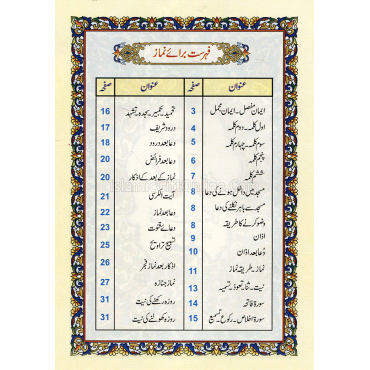 فہرست برائے نماز
عنوان صفحہ
ایمان مفصل۔ ایمان مجمل 3
اول کلمہ۔ دوم کلمہ 4
سوم کلمہ۔ چہارم کلمہ 5
پنجم کلمہ 6
ششم کلمہ 7
مسجد میں داخل ہونے کی دعا 8
مسجد سے باہر نکلنے کی دعا 8
وضو کرنے کا طریقہ 8
اذان 9
دعا بعد اذان 9
نماز۔ طریقہ نماز 11
نیت۔ ثنا۔ تعوذ۔ تسمیہ 13
سورۃ فاتحہ 14
سورۃ اخلاص۔ رکوع۔ تسمیع 15
عنوان صفحہ
تحمید۔ تکبیر۔ سجدہ۔ تشہد 16
درود شریف 17
دعا بعد درود 18
دعا بعد فرائض 20
نماز کے بعد کے اذکار 20
آیت الکرسی 21
دعا بعد نماز 22
دعائے قنوت 23
تسبیح تراویح 25
اذکار بعد نماز فجر 26
نماز جنازہ 27
روزہ رکھنے کی نیت 31
روزہ کھولنے کی نیت 31